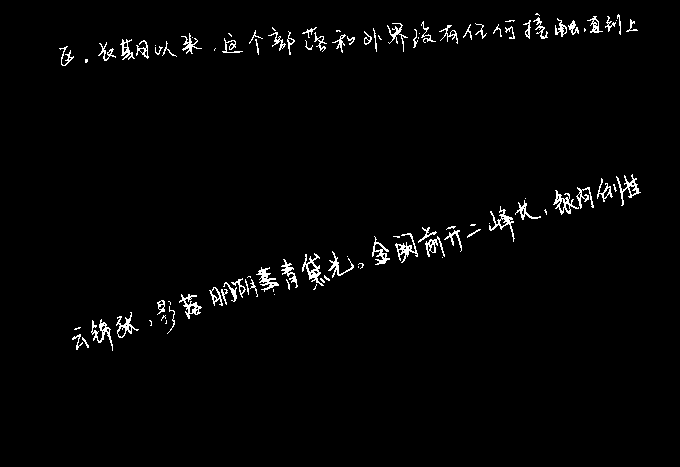 区。长期以来，这个部落和外界没有任何接触，直到上
云锦张，影落明湖青黛光。金阙前开二峰长，银河倒挂